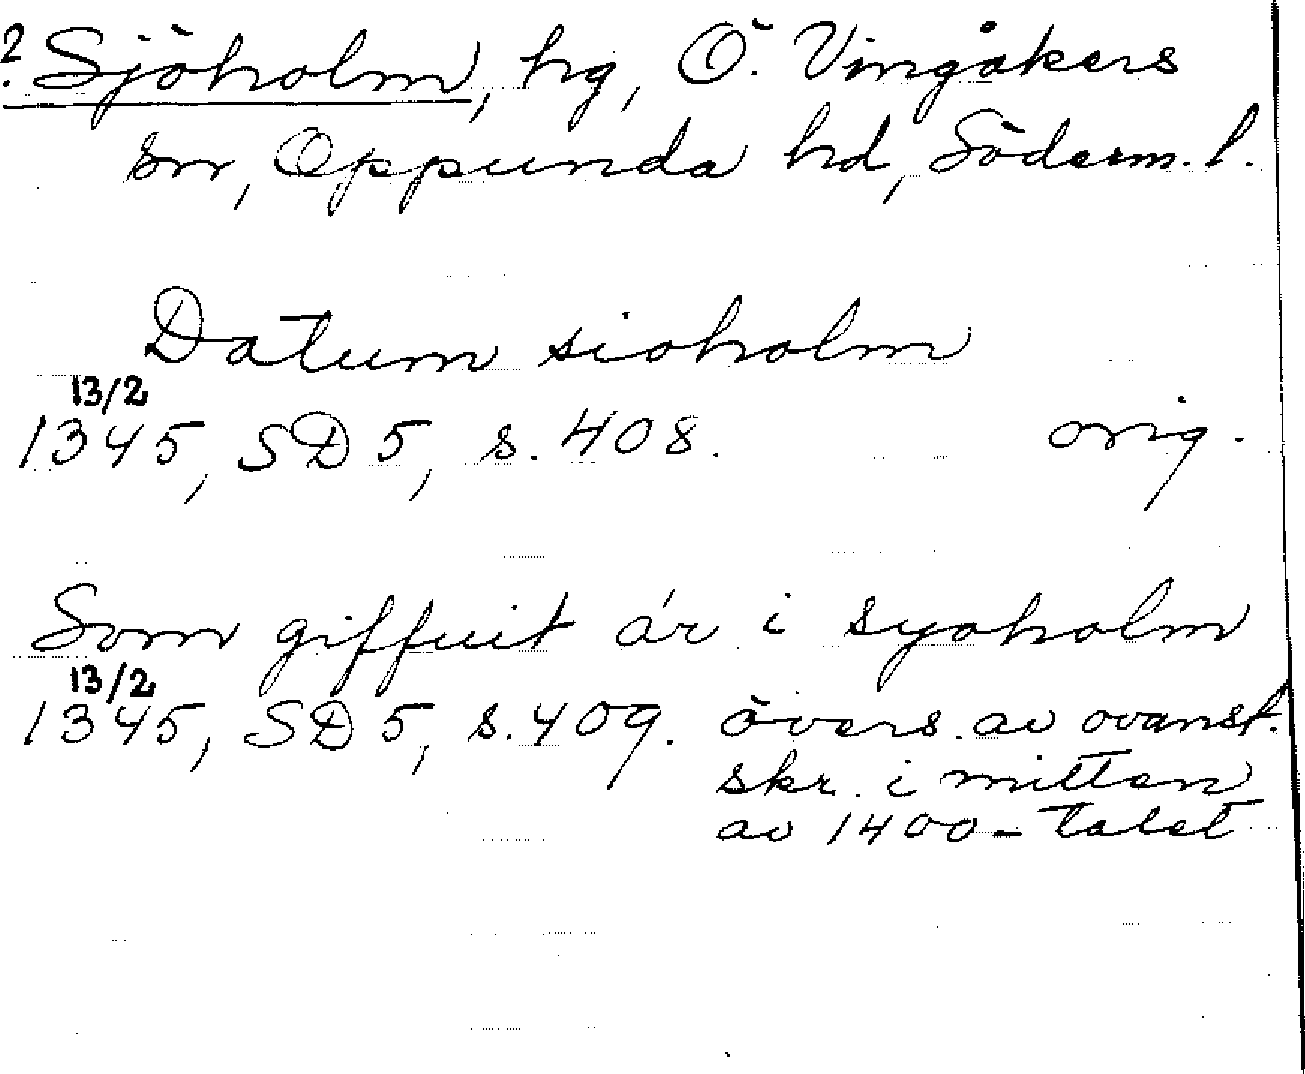 ? Sjöholm, hg, Ö. Vingåkers
sn, Oppunda hd, Söderm. l.
Datum sioholm
13/2
1345, SD 5, s. 408. orig.
Som giffuit är i syoholm
13/2
1345, SD 5, s. 409. övers. av ovanst.
skr. i mitten
av 1400-talet